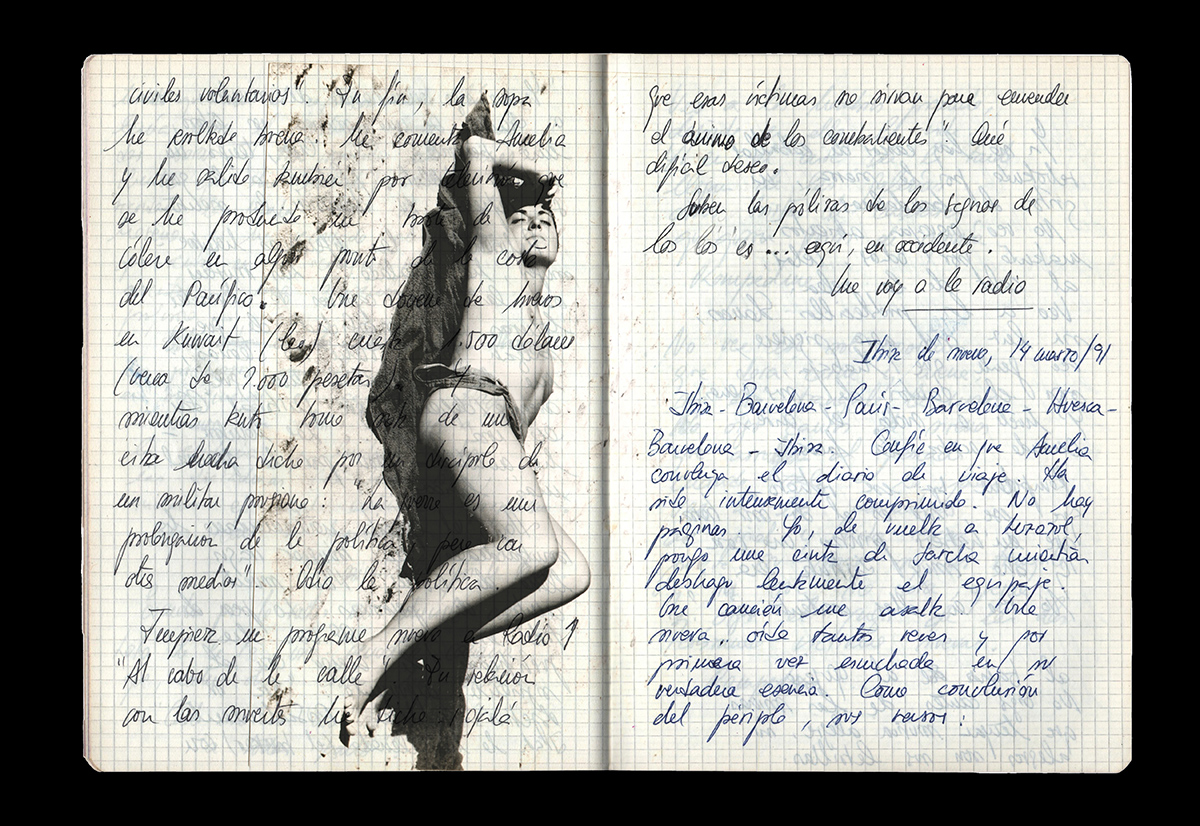 civiles voluntarios". En fin, la sopa
ha estado buena. Me comenta Amelia
y ha salido también por televisión que
se ha producido un brote de
cólera en algún punto de la costa
del Pacífico. Una docena de huevos
en Kuwait (leo) cuesta 1.500 dólares
(cerca de pesetas). Y
mientras tanto tomo nota de una
cita hecha dicha por un discípulo de
un militar prusiano: "La guerra es una
prolongación de la política, pero con
otros medios". Odio la política.
Empieza un programa nuevo a Radio 1
"Al cabo de la calle". En relación
con las muertes ha dicho "ojalá
que esas víctimas no sirvan para encender
el ánimo de los combatientes". Qué
difícil deseo.
Suben las pólizas de los seguros de
los ... aquí, en occidente.
Me voy a la radio
Ibiza de nuevo, 14 marzo/91
Ibiza - Barcelona - París - Barcelona - Huesca -
Barcelona - Ibiza. Confié en que Amelia
convenga el diario de viaje. Ha
sido intensamente comprimido. No hay
páginas. Yo, de vuelta a
pongo una cinta de
deshago lentamente el equipaje.
Una canción me asalta. Una
nueva, oída tantas veces y por
primera vez escuchada en su
verdadera esencia. Como conclusión
del périplo, sus versos: